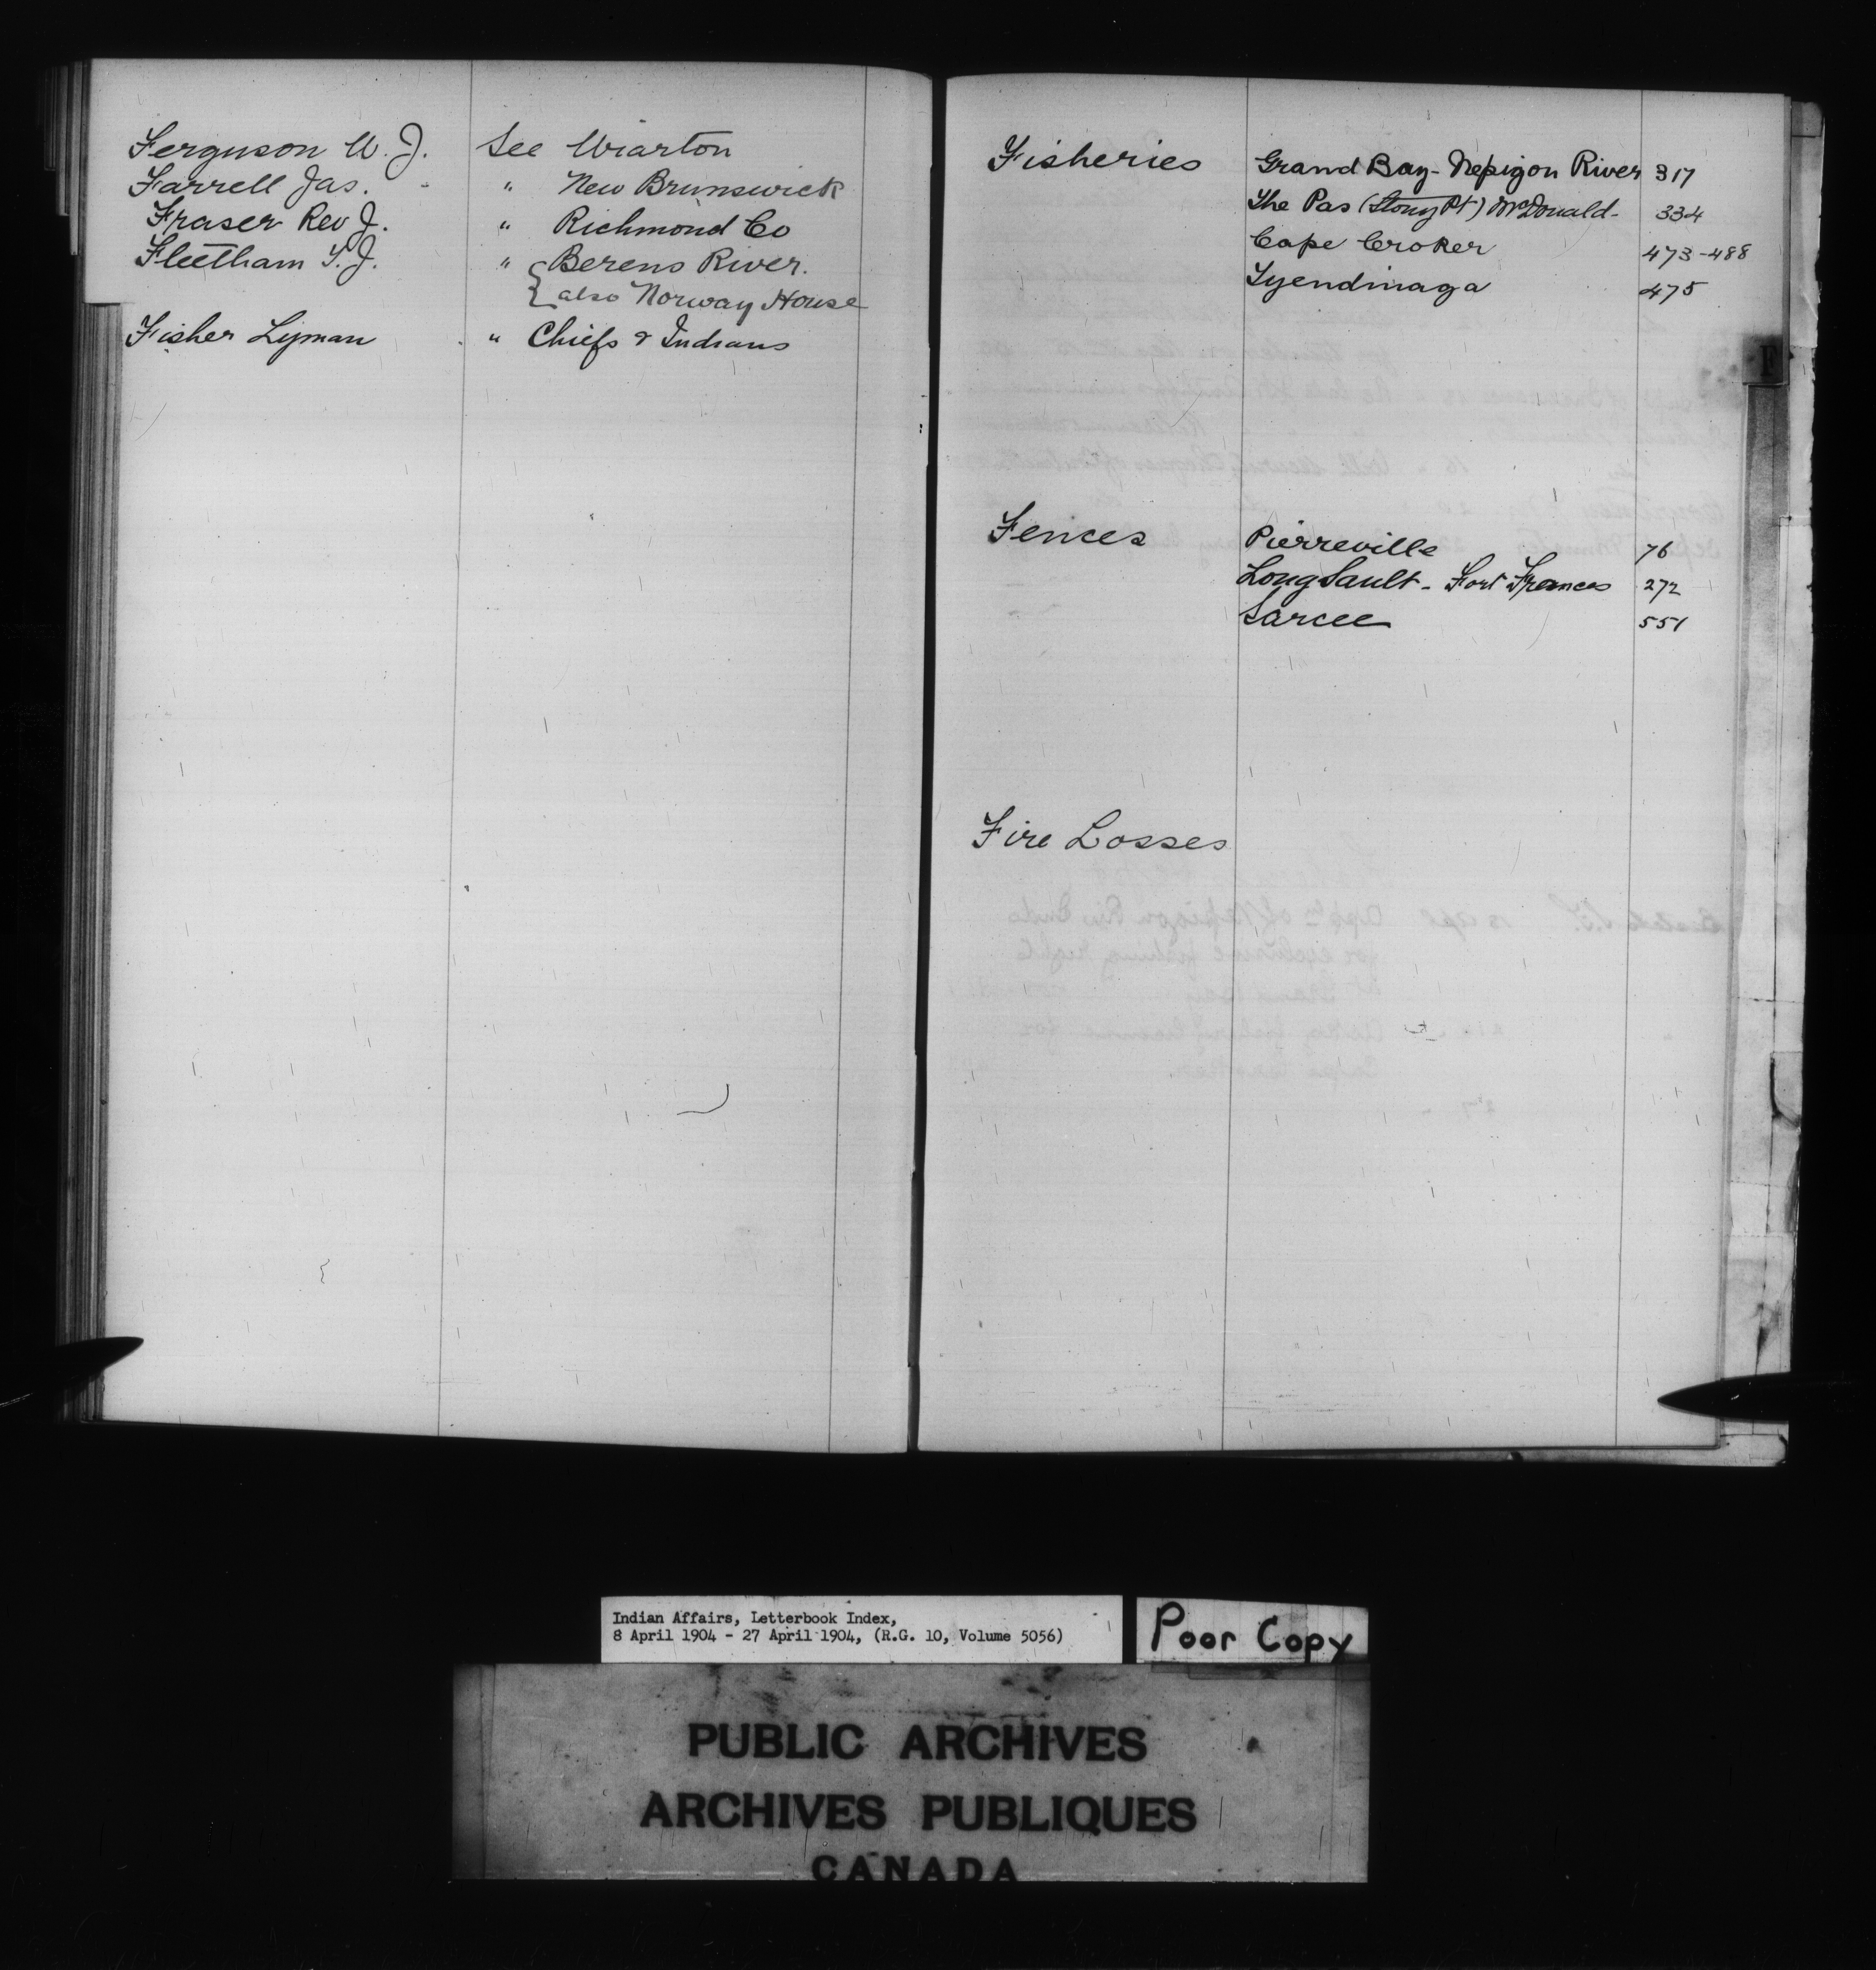 Ferguson W. J. See Wiarton
Farrell Jas. - " New Brunswick
Fraser Rev J. " Richmond Co
Fleetham T. J. " { Berens River.
also Norway House
Fisher Lyman " Chiefs & Indians
Fisheries Grand Bay - Nepigon River 317
The Pas (Stony Pt) McDonald - 334
Cape Croker 473-488
Tyendinaga 475
F
Fences Pierreville 76
Long Sault - Fort Frances 272
Sarcee 551
Fire Losses
Indian Affairs, Letterbook Index,
8 April 1904 - 27 April 1904, (R.G. 10, Volume 5056)
Poor Copy
PUBLIC ARCHIVES
ARCHIVES PUBLIQUES
CANADA